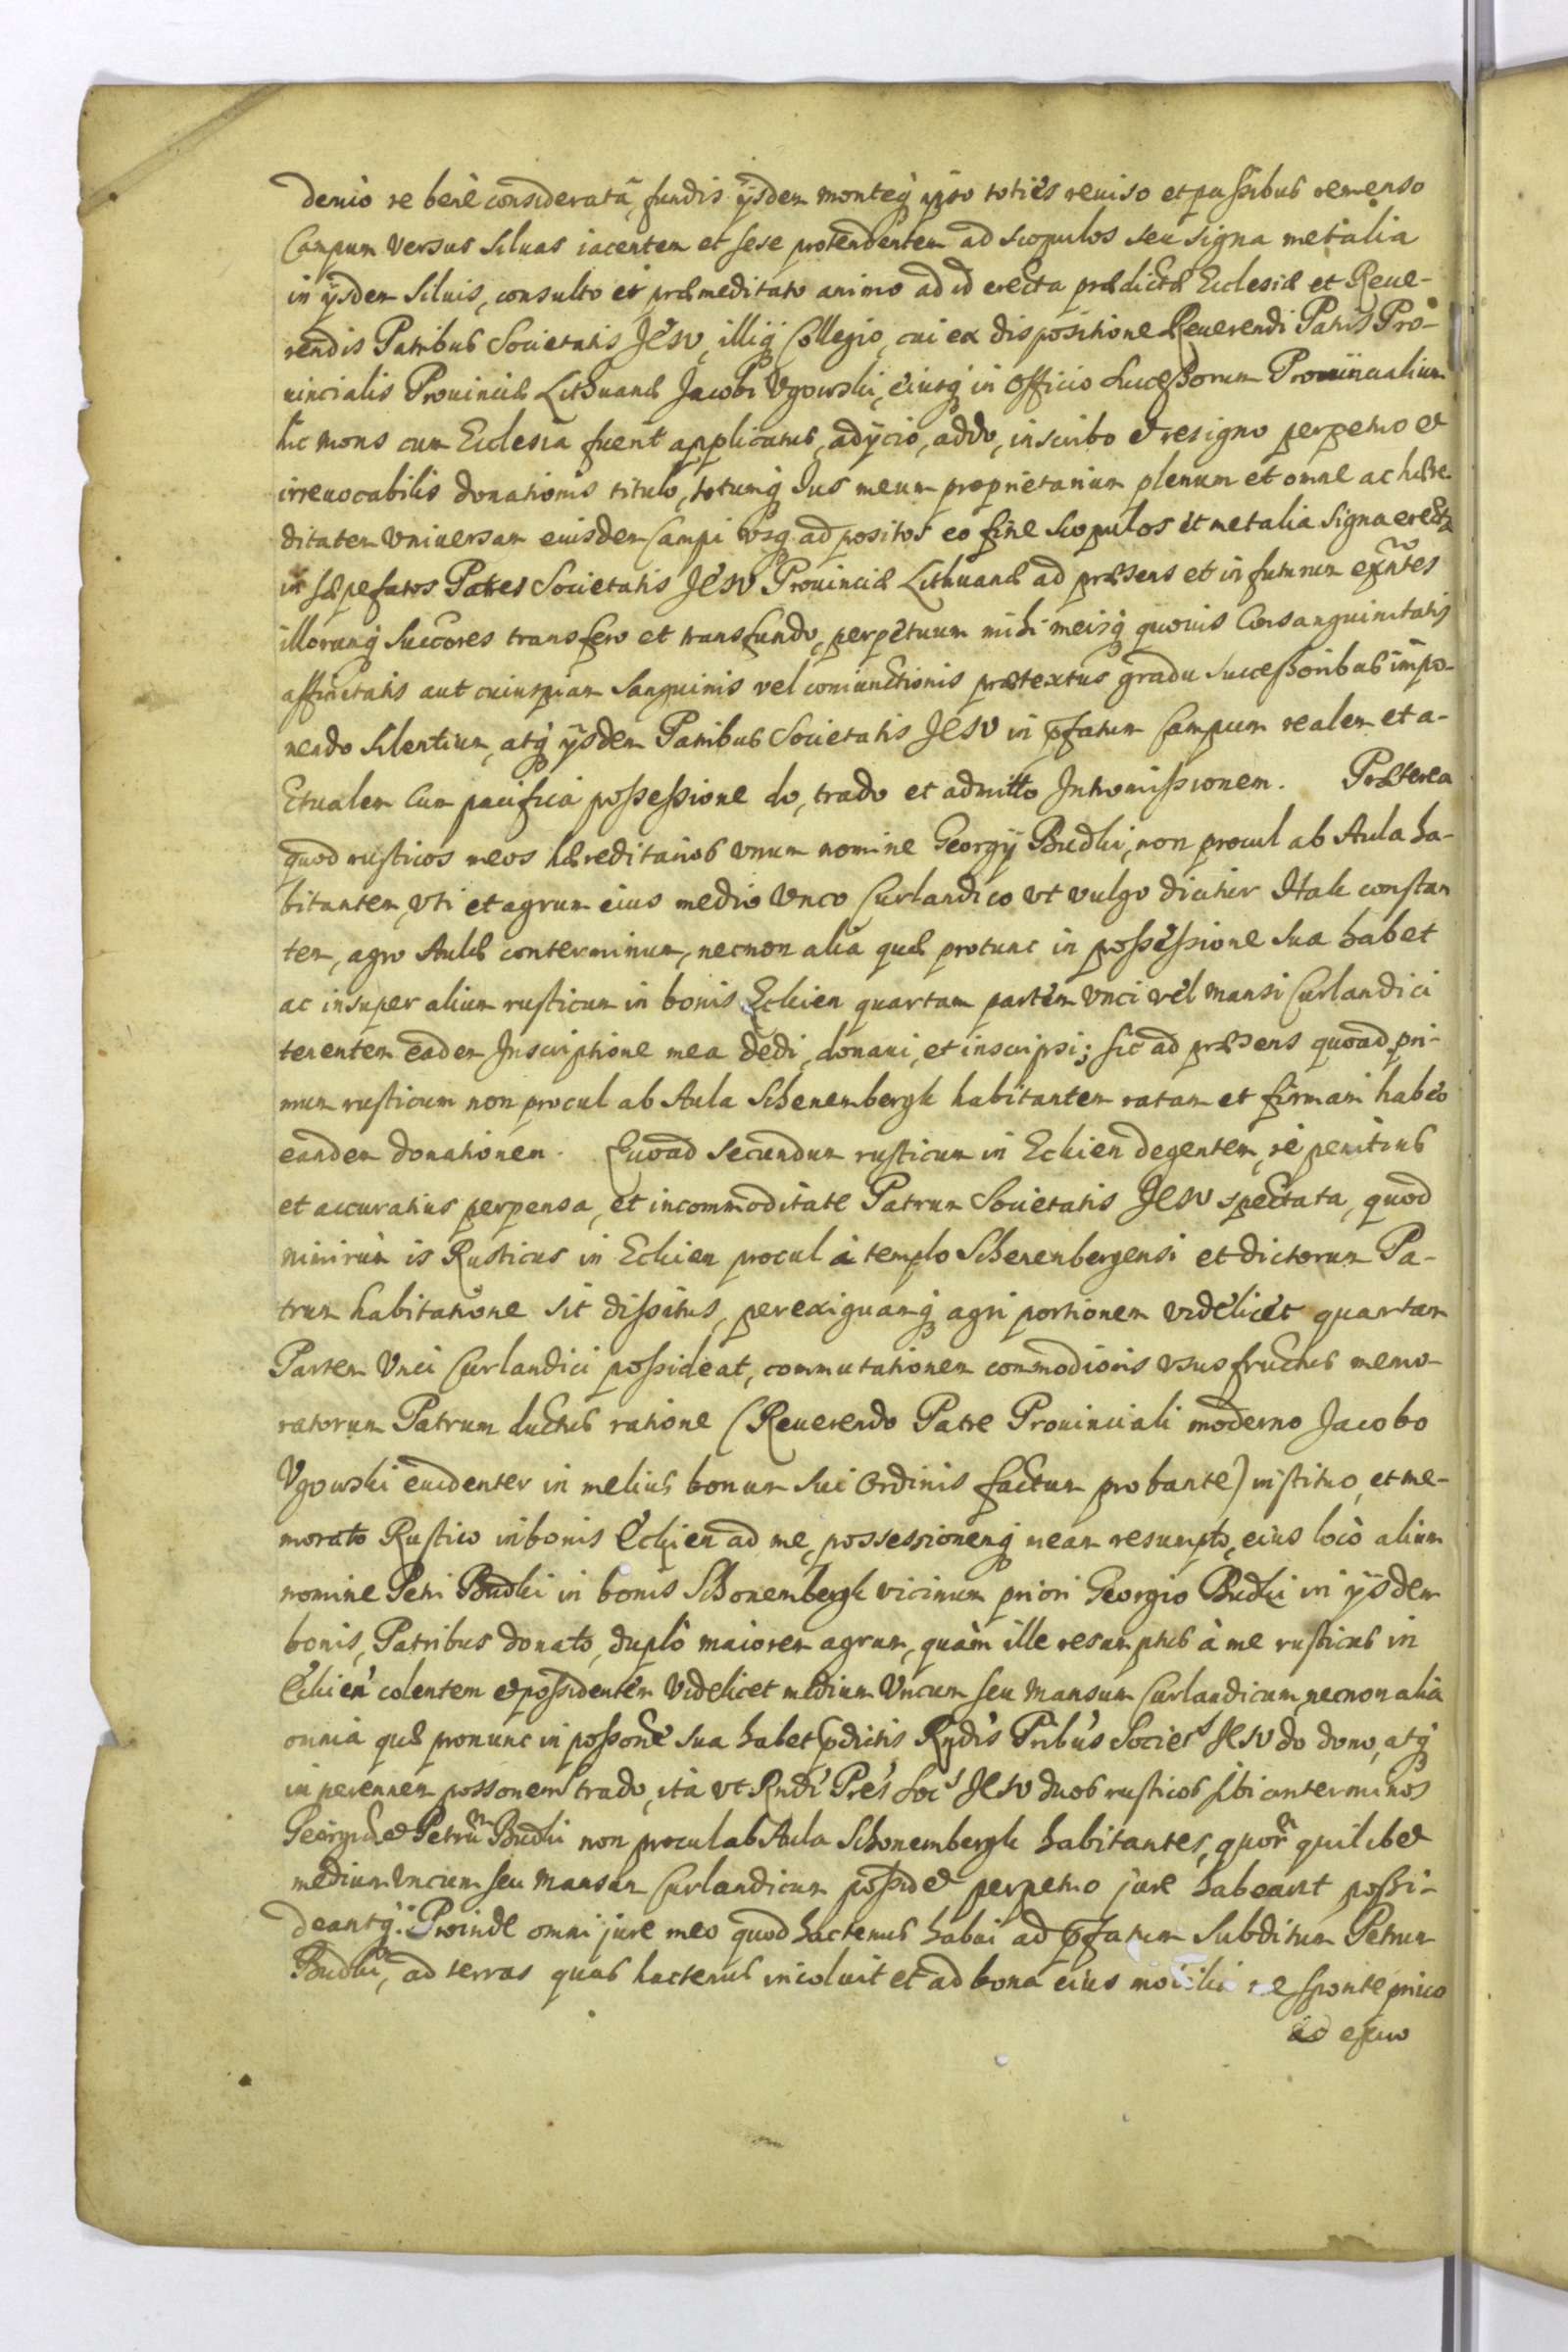 denuò re benè consideratâ, fundis ijsdem monteq́ ipso totiès reuiso et passibus remenso
Campum versus siluas iacentem et sese protendentem ad scopulos seu signa metalia
in ijsdem siluis, consulto et præmeditato animo ad id erecta prædictæ Ecclesiæ et Reue-
rendis Patribus Societatis JESV, illiq́ Collegio, cui ex dispositione Reuerendi Patris Pro-
uincialis Prouinciæ Lithuanæ Jacobi Vgowski, eiusq́ in Officio successorum Prouincialium
hic mons cum Ecclesia fuerit applicatus, adijcio, addo, inscribo et resigno perpetuo et
irreuocabilis donationis titulo, totumq́ Ius meum proprietarium plenum et omne ac hære
ditatem vniuersam eiusdem Campi vsq́ ad positos eo fine scopulos et metalia signa erecta
in sæpefatos Patres Societatis JESV Prouinciæ Lithuanæ ad præsens et in futurum exñtes
illorumq́ succores transfero et transfundo, perpetuum mihi meisq́ quouis Consanguinitatis
affinitatis aut cuiuspiam sanguinis vel coniunctionis prætextus gradu successoribus impo-
nendo silentium, atq́ ijsdem Patribus Societatis JESV in pfatum Campum realem et a-
ctualem cum pacifica possessione do, trado et admitto Intromissionem. Præterea
quod rusticos meos hæreditarios vnum nomine Georgij Budki, non procul ab Aula ha-
bitantem, vti et agrum eius medio Vnco Curlandico vt vulgo dicitur Hak constan
tem, agro Aulæ conterminum, necnon alia quæ protunc in possessione sua habet
ac insuper alium rusticum in bonis Eckien quartam partem vnci vel mansi Curlandici
tenentem eadem Inscriptione mea dedi, donaui, et inscripsi; sic ad præsens quoad pri-
mum rusticum non procul ab Aula Schenembergk habitantem ratam et firmam habeo
eandem donationem. Quoad secundum rusticum in Eckien degentem, rè penitius
et accuratius perpensa, et incommoditate Patrum Societatis JESV spectata, quod
nimirùm is Rusticus in Eckien procul à templo Schenenbergensi et dictorum Pa-
trum habitatione sit dissitus, perexiguamq́ agri portionem videlicèt quartam
Partem Vnci Curlandici possideat, commutationem commodioris vsusfructus memo-
ratorum Patrum ductus ratione (Reuerendo Patre Prouinciali moderno Jacobo
Vgowski euidenter in melius bonum sui Ordinis factum probante) instituo, et me-
morato Rustico in bonis Eckien ad me, possessionemq́ meam resumpto, eius locò alium
nomine Petri Budki in bonis Schonembergk vicinum priori Georgio Budki in ijsdem
bonis, Patribus donato, duplò maiorem agrum, quàm ille resumptus à me rusticus in
Eckien colentem et possidentem videlicet medium Vncum seu Mansum Curlandicum necnon alia
omnia quæ pronunc in possone sua habet pdictis Rndis Pribus Societ JESV do dono, atq́
in perennem possonem trado, ità vt Rndi Pres Soc JESV duos rusticos sibi conterminos
Georgiũ et Petrum Budki non procul ab Aula Schonembergk habitantes, quorm quilibet
medium vncum seu Mansum Curlandicum possidet perpetuo jure habeant possi-
deantq́. Proinde omni jure meo quod hactenus habui ad pfatum subditum Petrum
Budki, ad terras quas hactenus incoluit et ad bona eius mobilia me sponte priuo